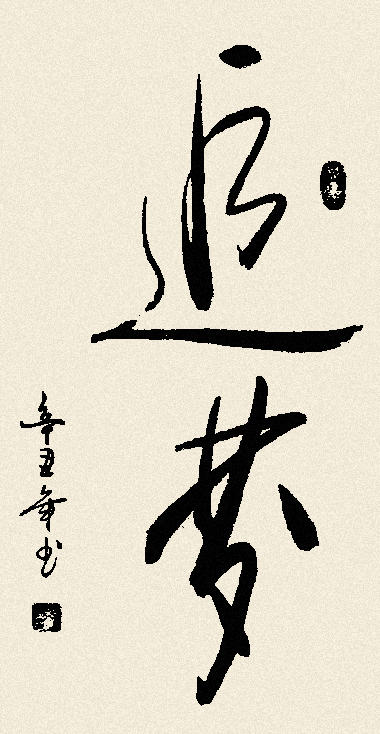 追梦
辛丑年书